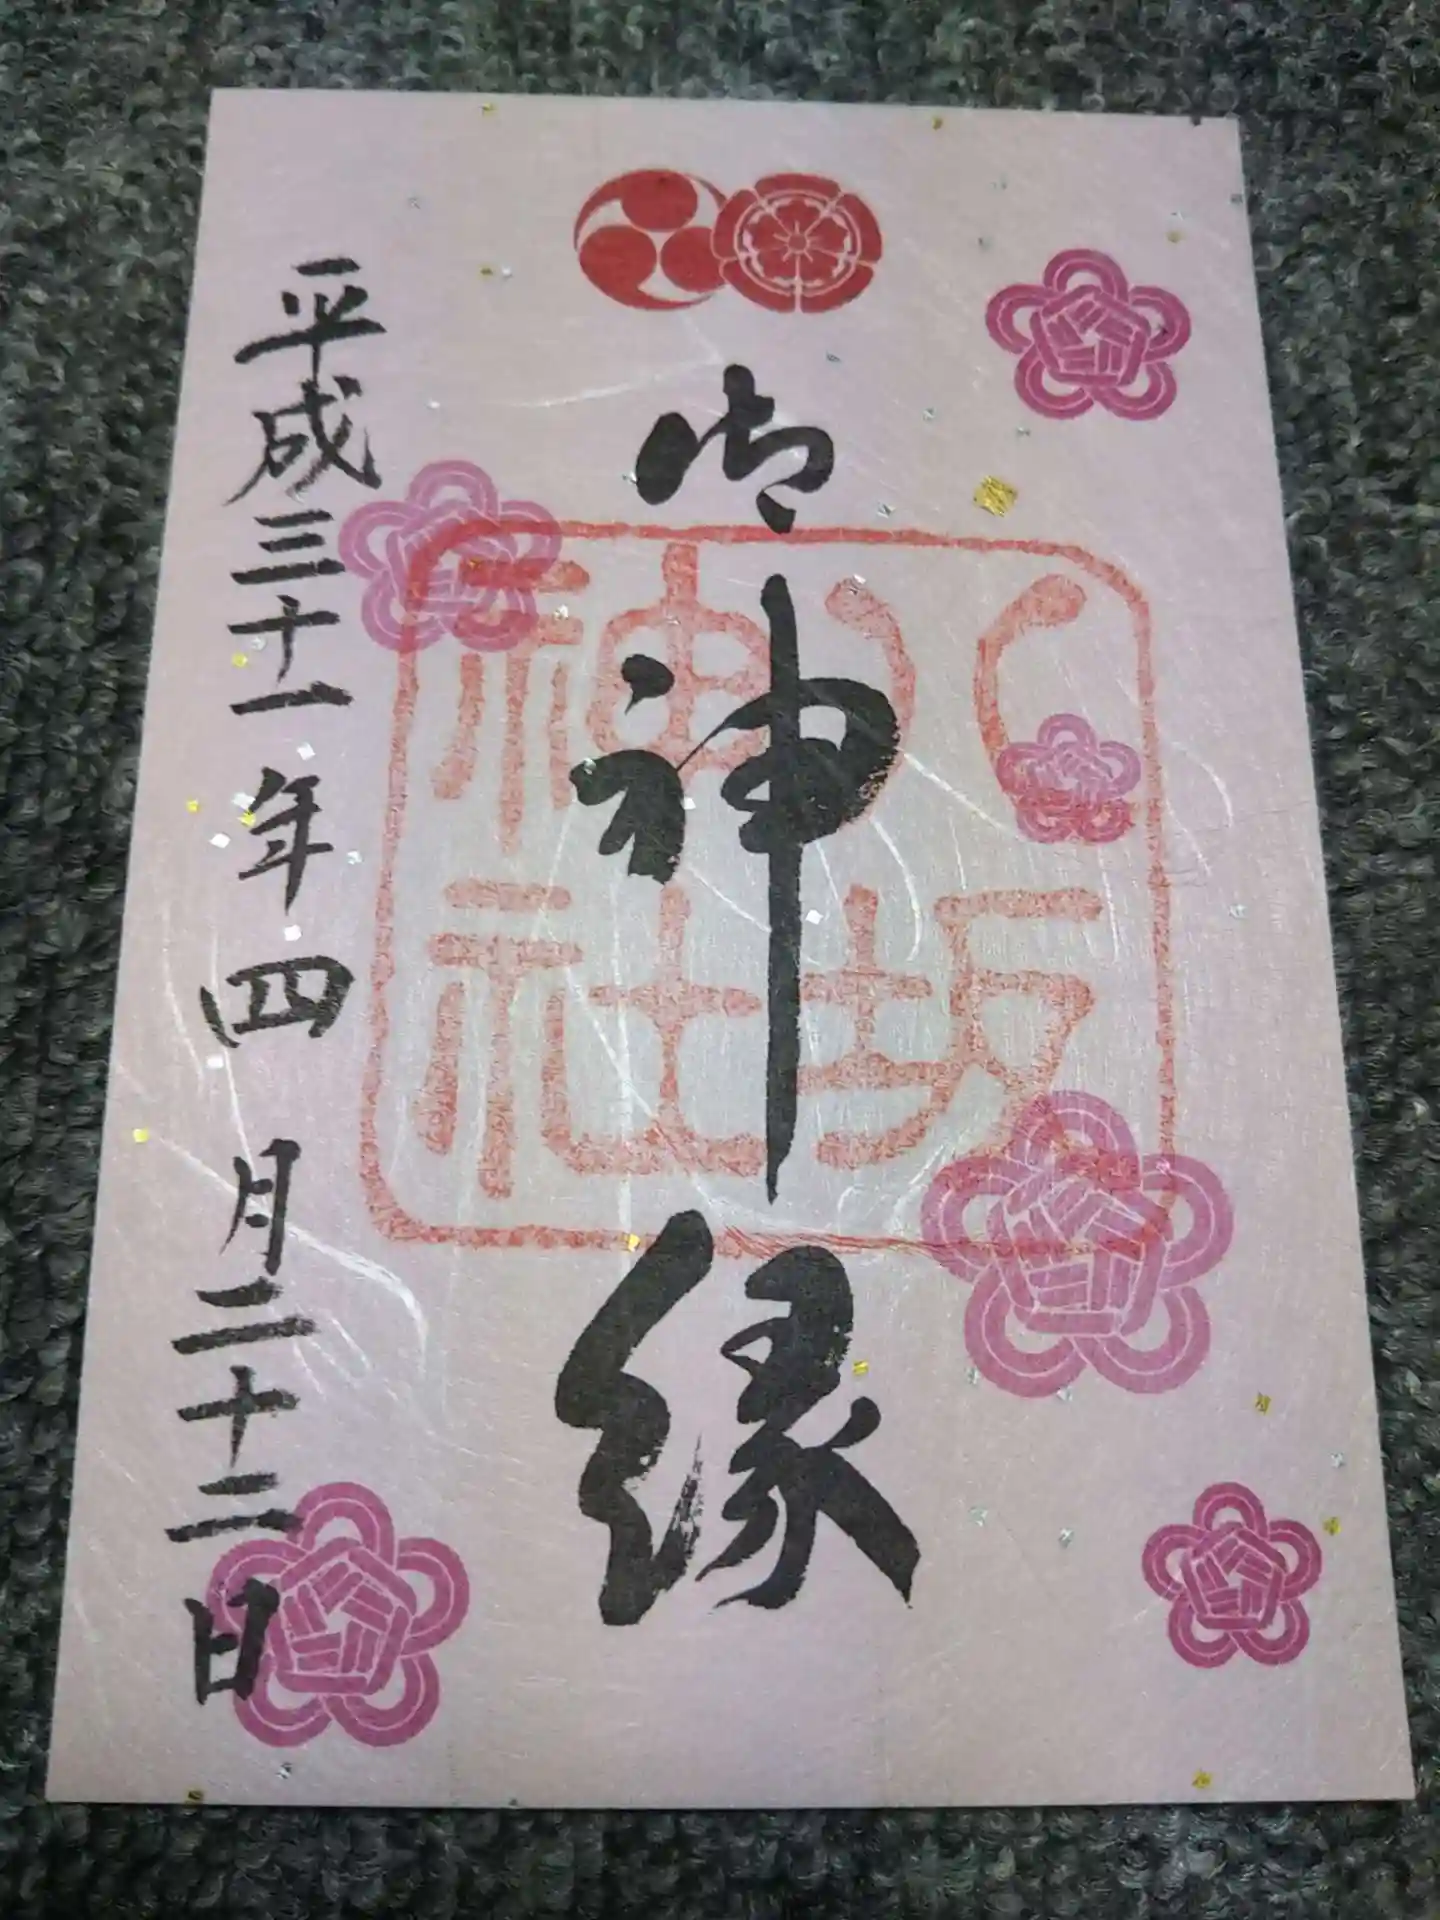 御神縁
八坂
神社
平成三十一年四月二十二日